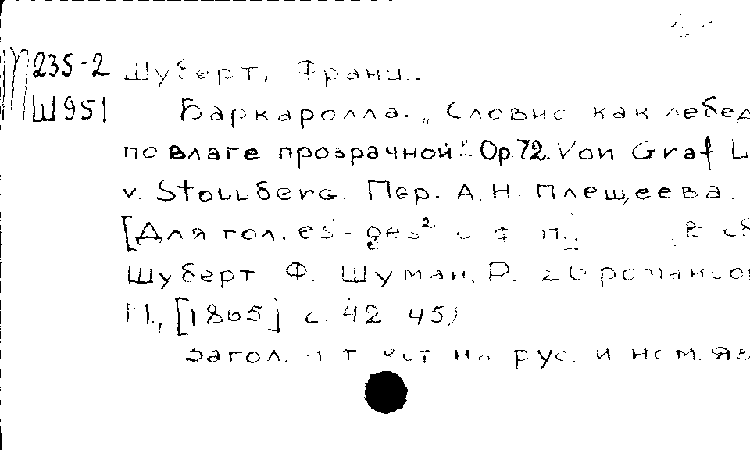 П235-2 Шуберт, Франц.
Ш951 Баркаролла. „Словно как лебед
по влаге прозрачной". Op. 72. Von Graf L
v. Stollberg. Пер. А. Н. Плещеева.
[Для гол. es¹-ges² с ф-п.] в сб
Шуберт Ф. Шуман, Р. 26 романсов
М., [1865] с. 42-45)
Загол. и текст на рус. и нем. яз